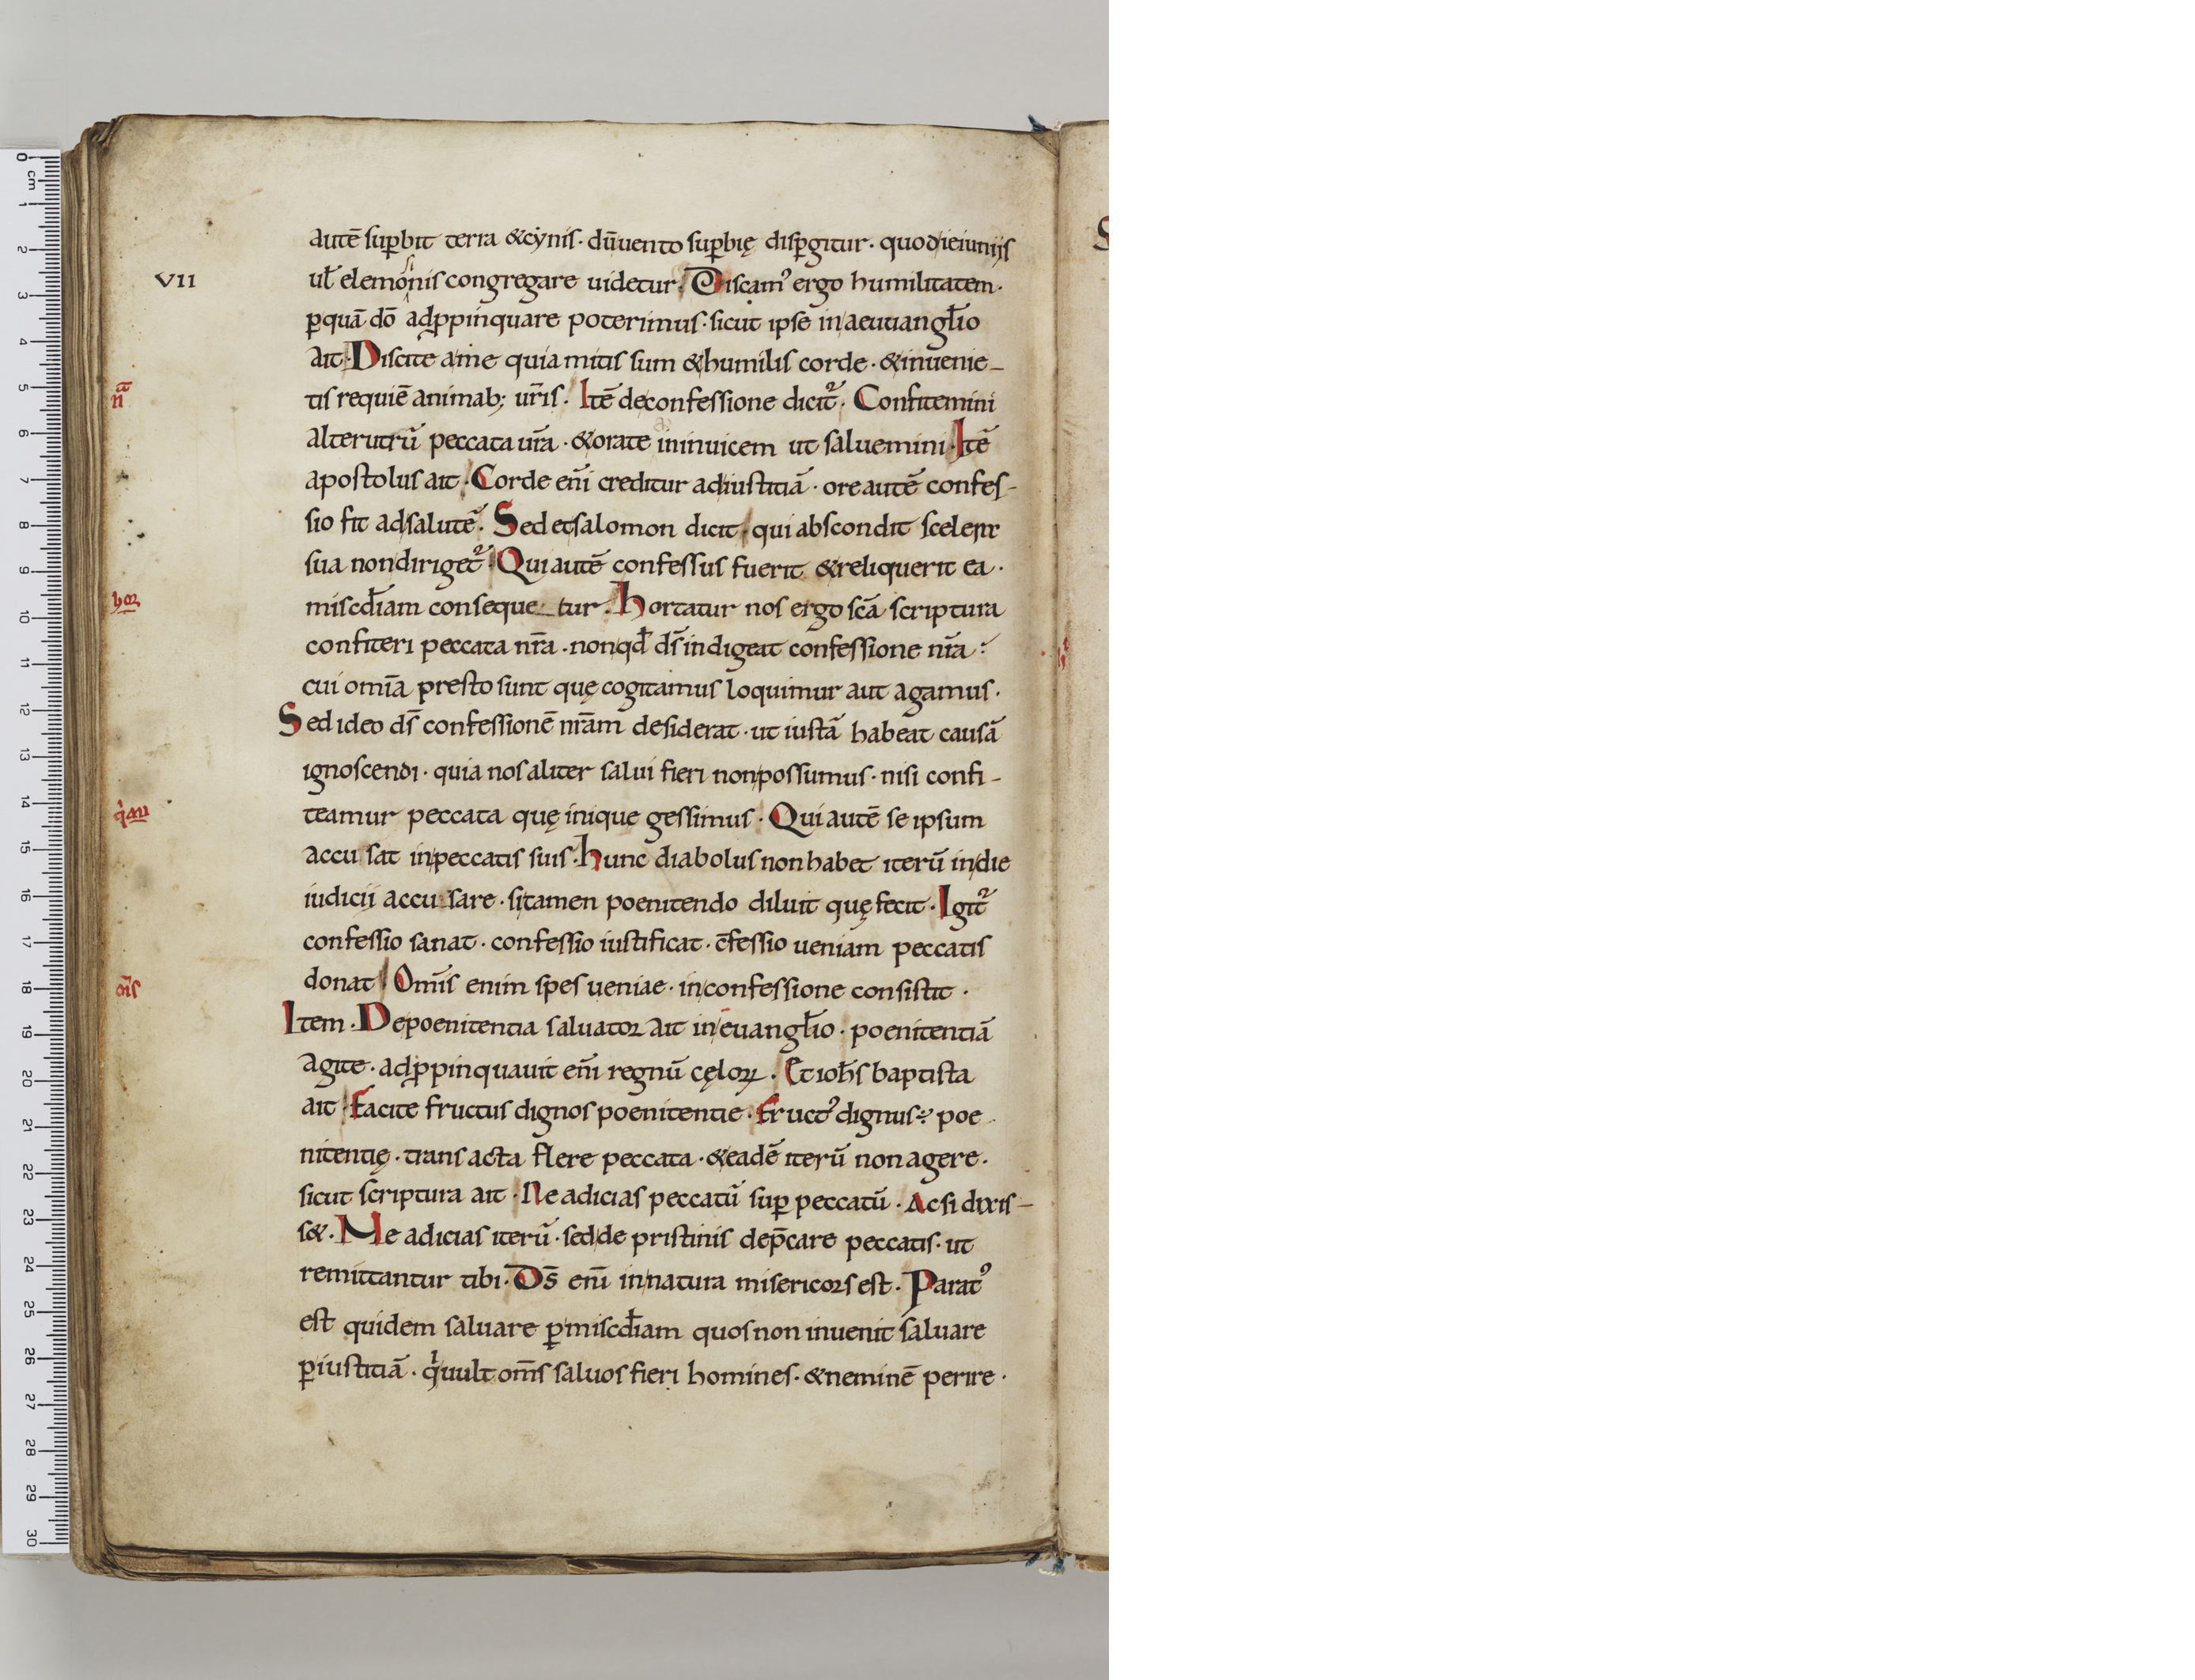 autē suꝑbit terra &cynis· dū uento suꝑbię disꝑgitur· quod ieiuniis
VII
ul̄ elemosinis congregare uidetur. Discamꝰ ergo humilitatem·
ꝑquā dō adꝓpinquare poterimus· sicut ipse in aeuuangl̄io
ait· Discite a me quia mitis sum &humilis corde· &inuenie-
tis requiē animab; ur̄is. Itē de confessione dicit᷑. Confitemini
alterutrū peccata ur̄a· &orate in inuicem ut saluemini· Itē
apostolus ait· Corde enī creditur ad iustitiā· ore autē confes-
sio fit ad salutē. Sed et salomon dicit· qui abscondit scelera
sua non diriget᷑· Qui autē confessus fuerit &reliquerit ea·
hor
miscd̄iam conseque tur. hortatur nos ergo scā scriptura
confiteri peccata nr̄a· non qđ ds̄ indigeat confessione nr̄a·
cui om̄ia presto sunt quę cogitamus loquimur aut agamus·
Sed ideo ds̄ confessionē nr̄am desiderat· ut iustā habeat causā
ignoscendi· quia nos aliter salui fieri non possumus· nisi confi-
teamur peccata quę inique gessimus· Qui autē se ipsum
accu sat in peccatis suis· hunc diabolus non habet iterū in die
iudicii accu sare· si tamen poenitendo diluit quę fecit· Igit᷑
confessio sanat· confessio iustificat· c̄fessio ueniam peccatis
om̄s
donat Om̄is enim spes ueniae· in confessione consistit·
Item· De poenitentia saluator ait in euangl̄io· poenitentiā
agite· adꝓpinquauit enī regnū cęloꝝ. Et ioh̄s baptista
ait· Facite fructus dignos poenitentie· Fructꝰ dignus ÷ poe
nitentię· trans acta flere peccata· &eadē iterū non agere·
sicut scriptura ait· Ne adicias peccatū suꝑ peccatū· Ac si dixis-
s&. Ne adicias iterū· sed de pristinis dep̄care peccatis· ut
remittantur tibi· Ds̄ enī in natura misericors est· Paratꝰ
est quidem saluare ꝑ miscd̄iam quos non inuenit saluare
ꝑ iustitiā· qͥ uult om̄s saluos fieri homines· &neminē perire·